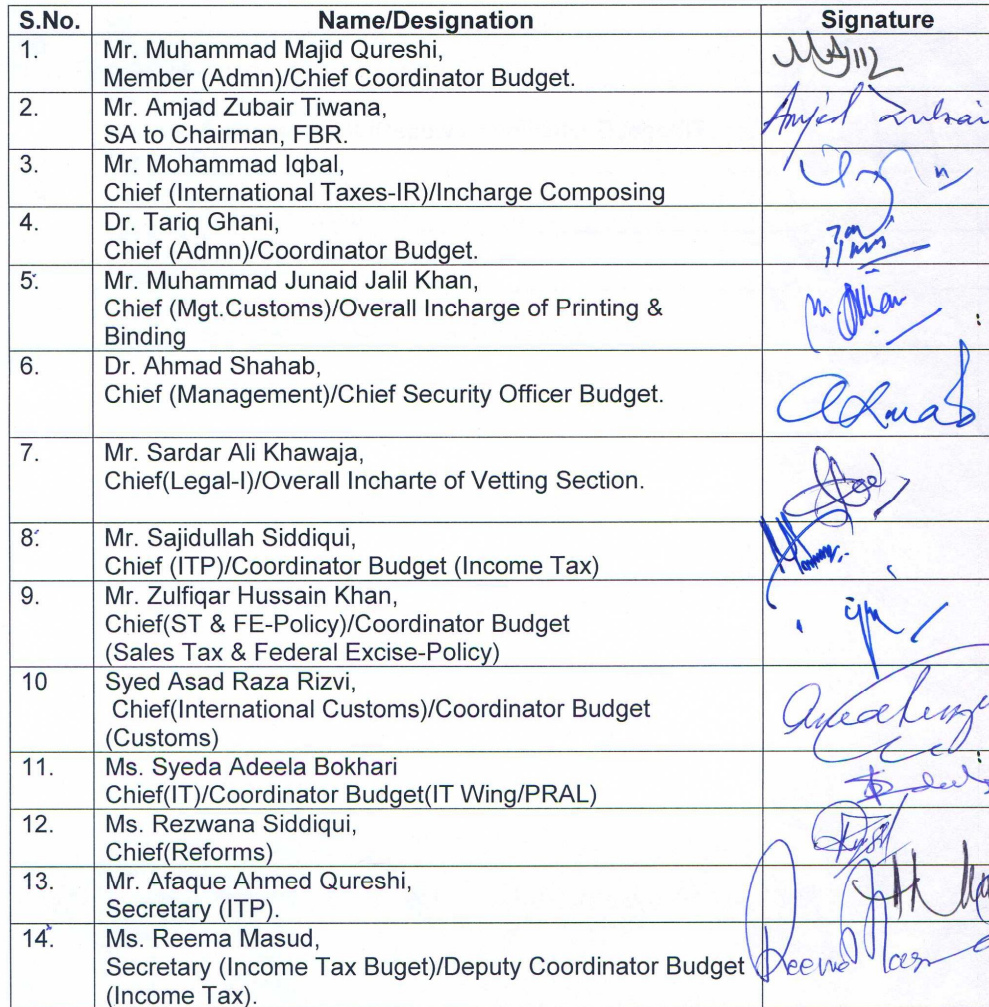 S.No. Name/Designation Signature
1. Mr. Muhammad Majid Qureshi,
Member (Admn)/Chief Coordinator Budget.
2. Mr. Amjad Zubair Tiwana, Amjad Zubai
SA to Chairman, FBR.
3. Mr. Mohammad Iqbal,
Chief (International Taxes-IR)/Incharge Composing
4. Dr. Tariq Ghani,
Chief (Admn)/Coordinator Budget.
5. Mr. Muhammad Junaid Jalil Khan,
Chief (Mgt.Customs)/Overall Incharge of Printing &
Binding
6. Dr. Ahmad Shahab,
Chief (Management)/Chief Security Officer Budget.
7. Mr. Sardar Ali Khawaja,
Chief(Legal-I)/Overall Incharte of Vetting Section.
8. Mr. Sajidullah Siddiqui,
Chief (ITP)/Coordinator Budget (Income Tax)
9. Mr. Zulfiqar Hussain Khan,
Chief(ST & FE-Policy)/Coordinator Budget
(Sales Tax & Federal Excise-Policy)
10 Syed Asad Raza Rizvi,
Chief(International Customs)/Coordinator Budget
(Customs)
11. Ms. Syeda Adeela Bokhari
Chief(IT)/Coordinator Budget(IT Wing/PRAL)
12. Ms. Rezwana Siddiqui,
Chief(Reforms)
13. Mr. Afaque Ahmed Qureshi,
Secretary (ITP).
14. Ms. Reema Masud,
Secretary (Income Tax Buget)/Deputy Coordinator Budget Reema
(Income Tax).